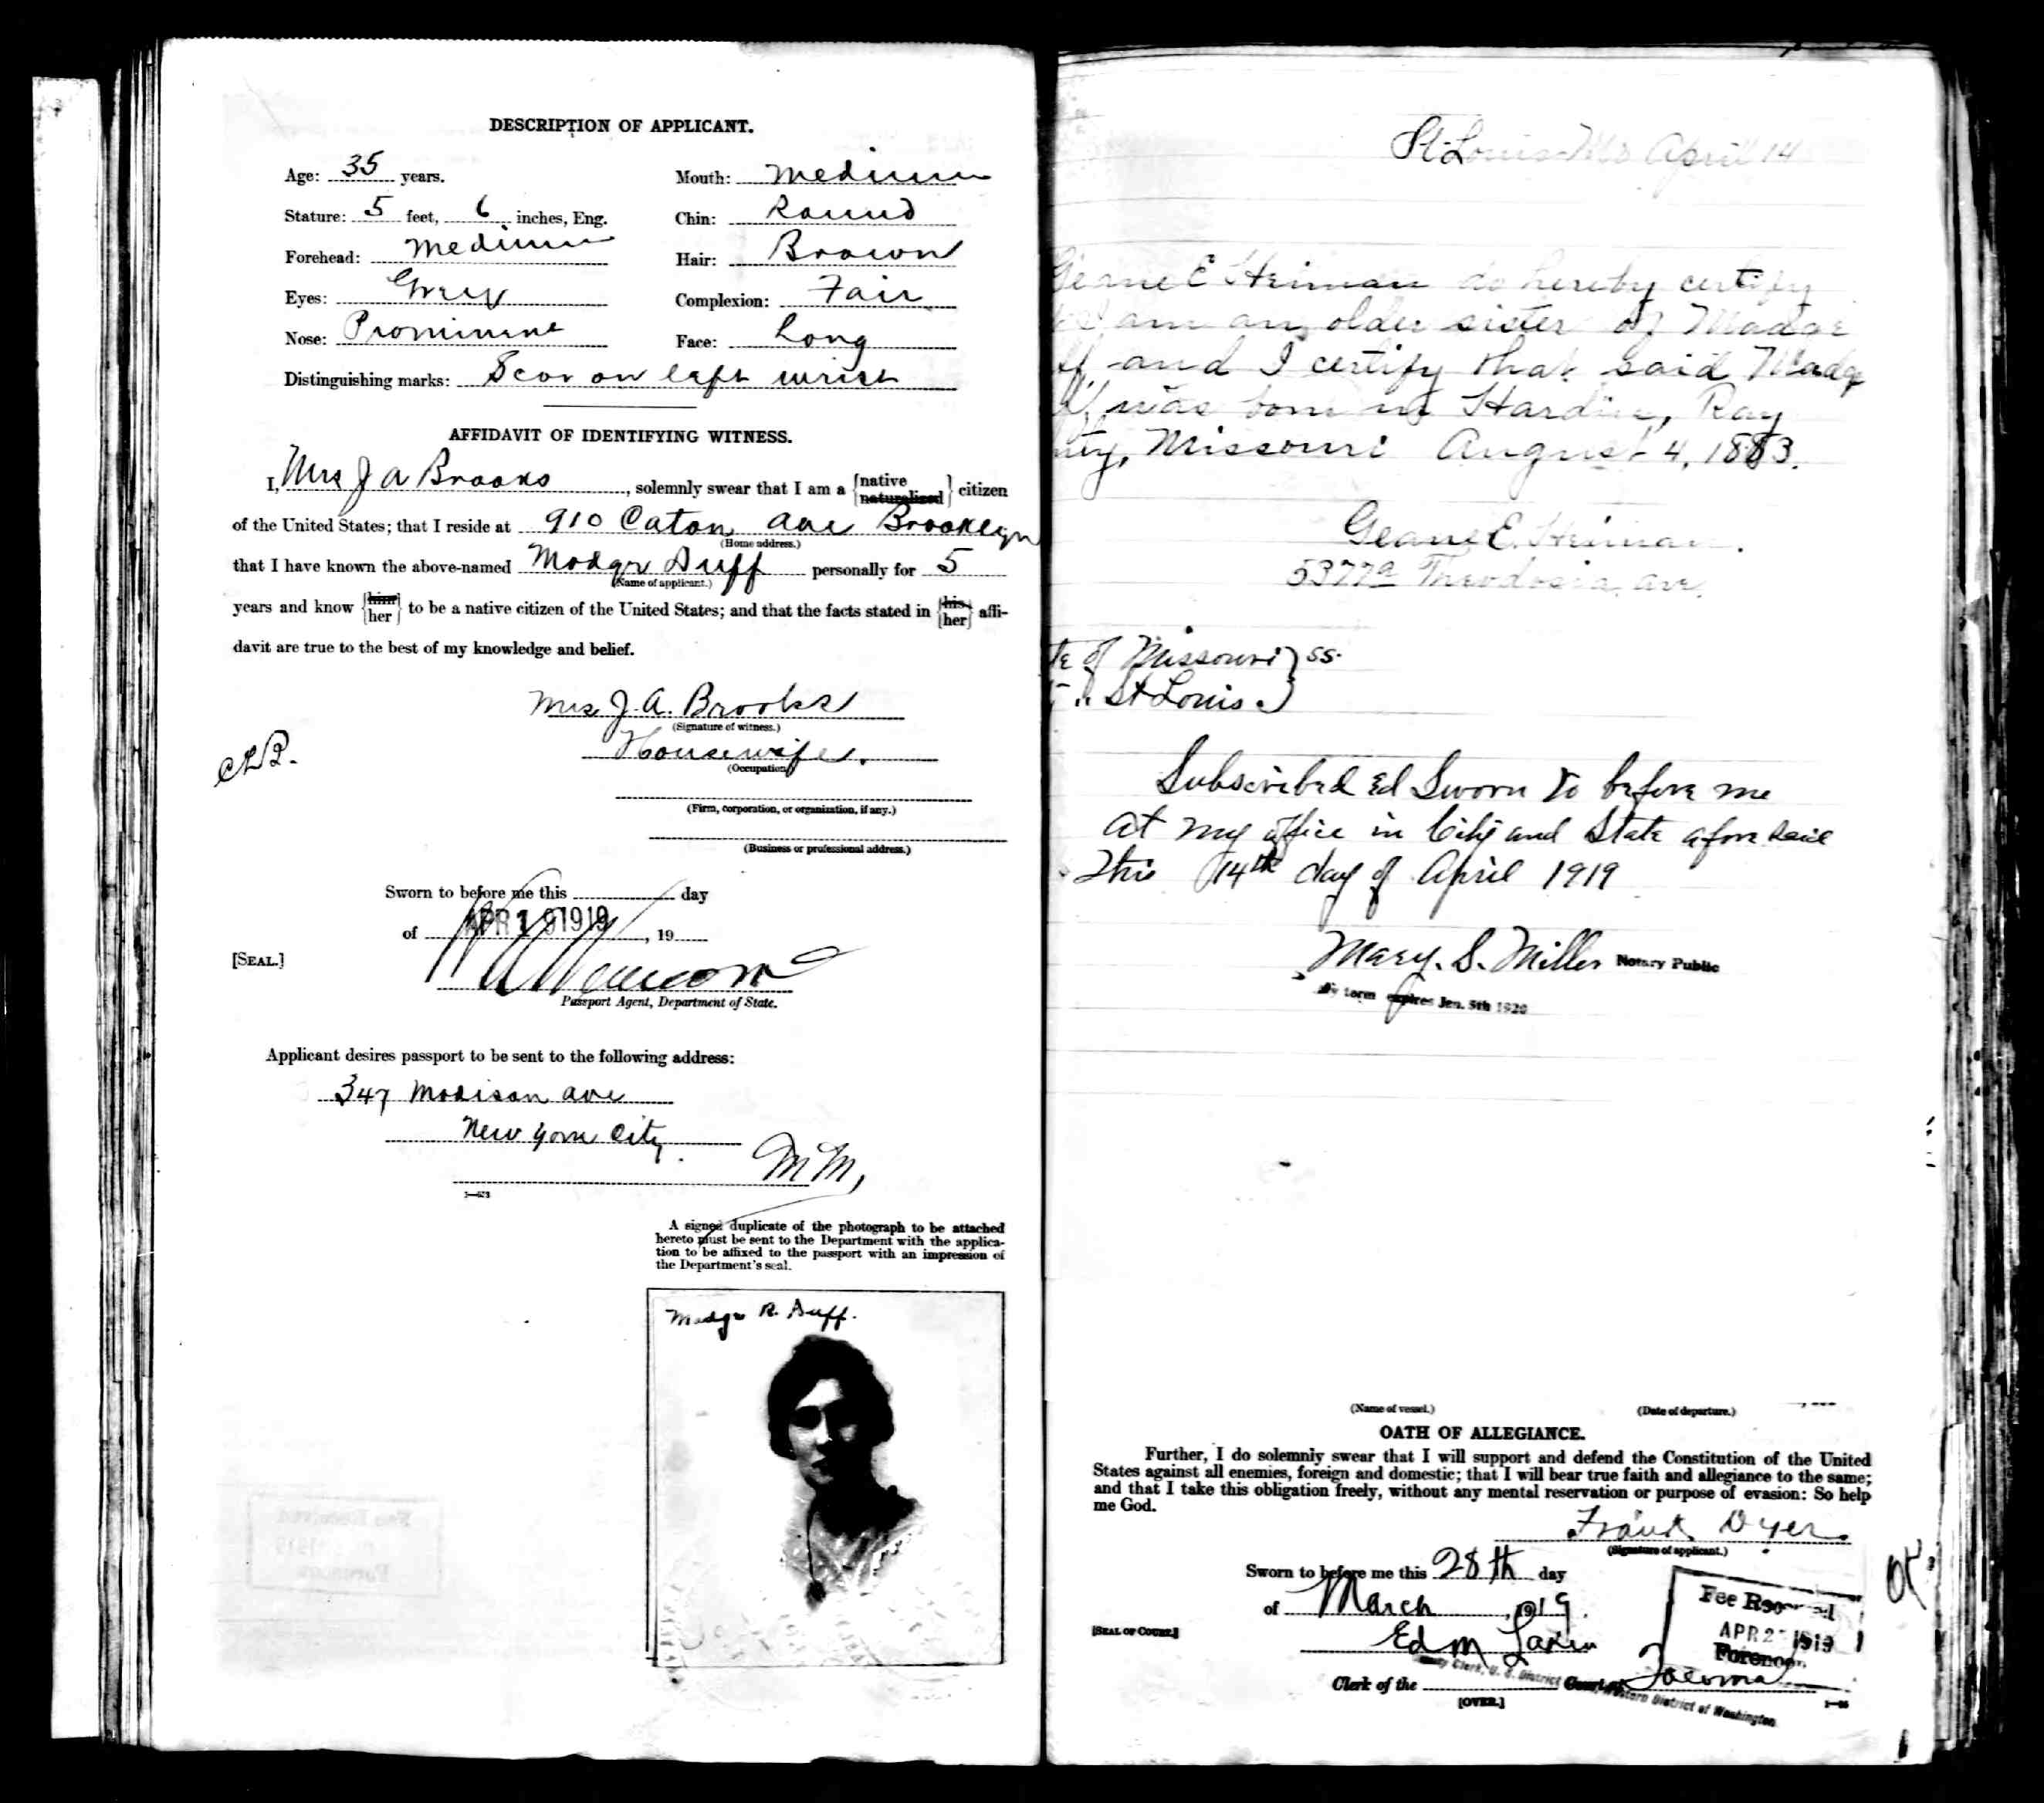 DESCRIPTION OF APPLICANT.
Age: 35 years. Mouth: Medium
Stature: 5 feet, 6 inches, Eng. Chin: Round
Forehead: Medium Hair: Brown
Eyes: Grey Complexion: Fair
Nose: Prominent Face: Long
Distinguishing marks: Scar on left wrist
AFFIDAVIT OF IDENTIFYING WITNESS.
I, Mrs J A Brooks, solemnly swear that I am a {native naturalized} citizen
of the United States; that I reside at 910 Caton Ave Brooklyn
(Home address.)
that I have known the above-named Madge Duff personally for 5
(Name of applicant.)
years and know {him her} to be a native citizen of the United States; and that the facts stated in {his her} affi-
davit are true to the best of my knowledge and belief.
Mrs J. A. Brooks
(Signature of witness.)
Housewife.
(Occupation)
(Firm, corporation, or organization, if any.)
(Business or professional address.)
Sworn to before me this day
of APR 19 1919, 19
[SEAL.]
Passport Agent, Department of State.
Applicant desires passport to be sent to the following address:
347 Madison Ave
New York City.
MM,
A signed duplicate of the photograph to be attached
hereto must be sent to the Department with the applica-
tion to be affixed to the passport with an impression of
the Department's seal.
Madge R. Duff.
St. Louis Mo April 14
Geane E Heiman do hereby certify
I am an older sister of Madge
ff, and I certify that said Madge
ff, was born in Hardin, Ray
nty, Missouri August 4, 1883.
Geane E. Heiman.
5377a Theodosia ave.
te of Missouri } ss.
" St Louis }
Subscribed Ed Sworn to before me
at my office in City and State afore said
This 14th day of April 1919
Mary. S. Miller Notary Public
My term expires Jan. 5th 1920
(Name of vessel.) (Date of departure.)
OATH OF ALLEGIANCE.
Further, I do solemnly swear that I will support and defend the Constitution of the United
States against all enemies, foreign and domestic; that I will bear true faith and allegiance to the same;
and that I take this obligation freely, without any mental reservation or purpose of evasion: So help
me God.
Frank Dyer.
(Signature of applicant.)
Sworn to before me this 28th day
of March, 1919.
[SEAL OF COURT.]
Fee Received
APR 2 1919
Forenoon
Clerk of the Court at Tacoma
Deputy Clerk, U. S. District Court, Western District of Washington
[OVER.]
OK